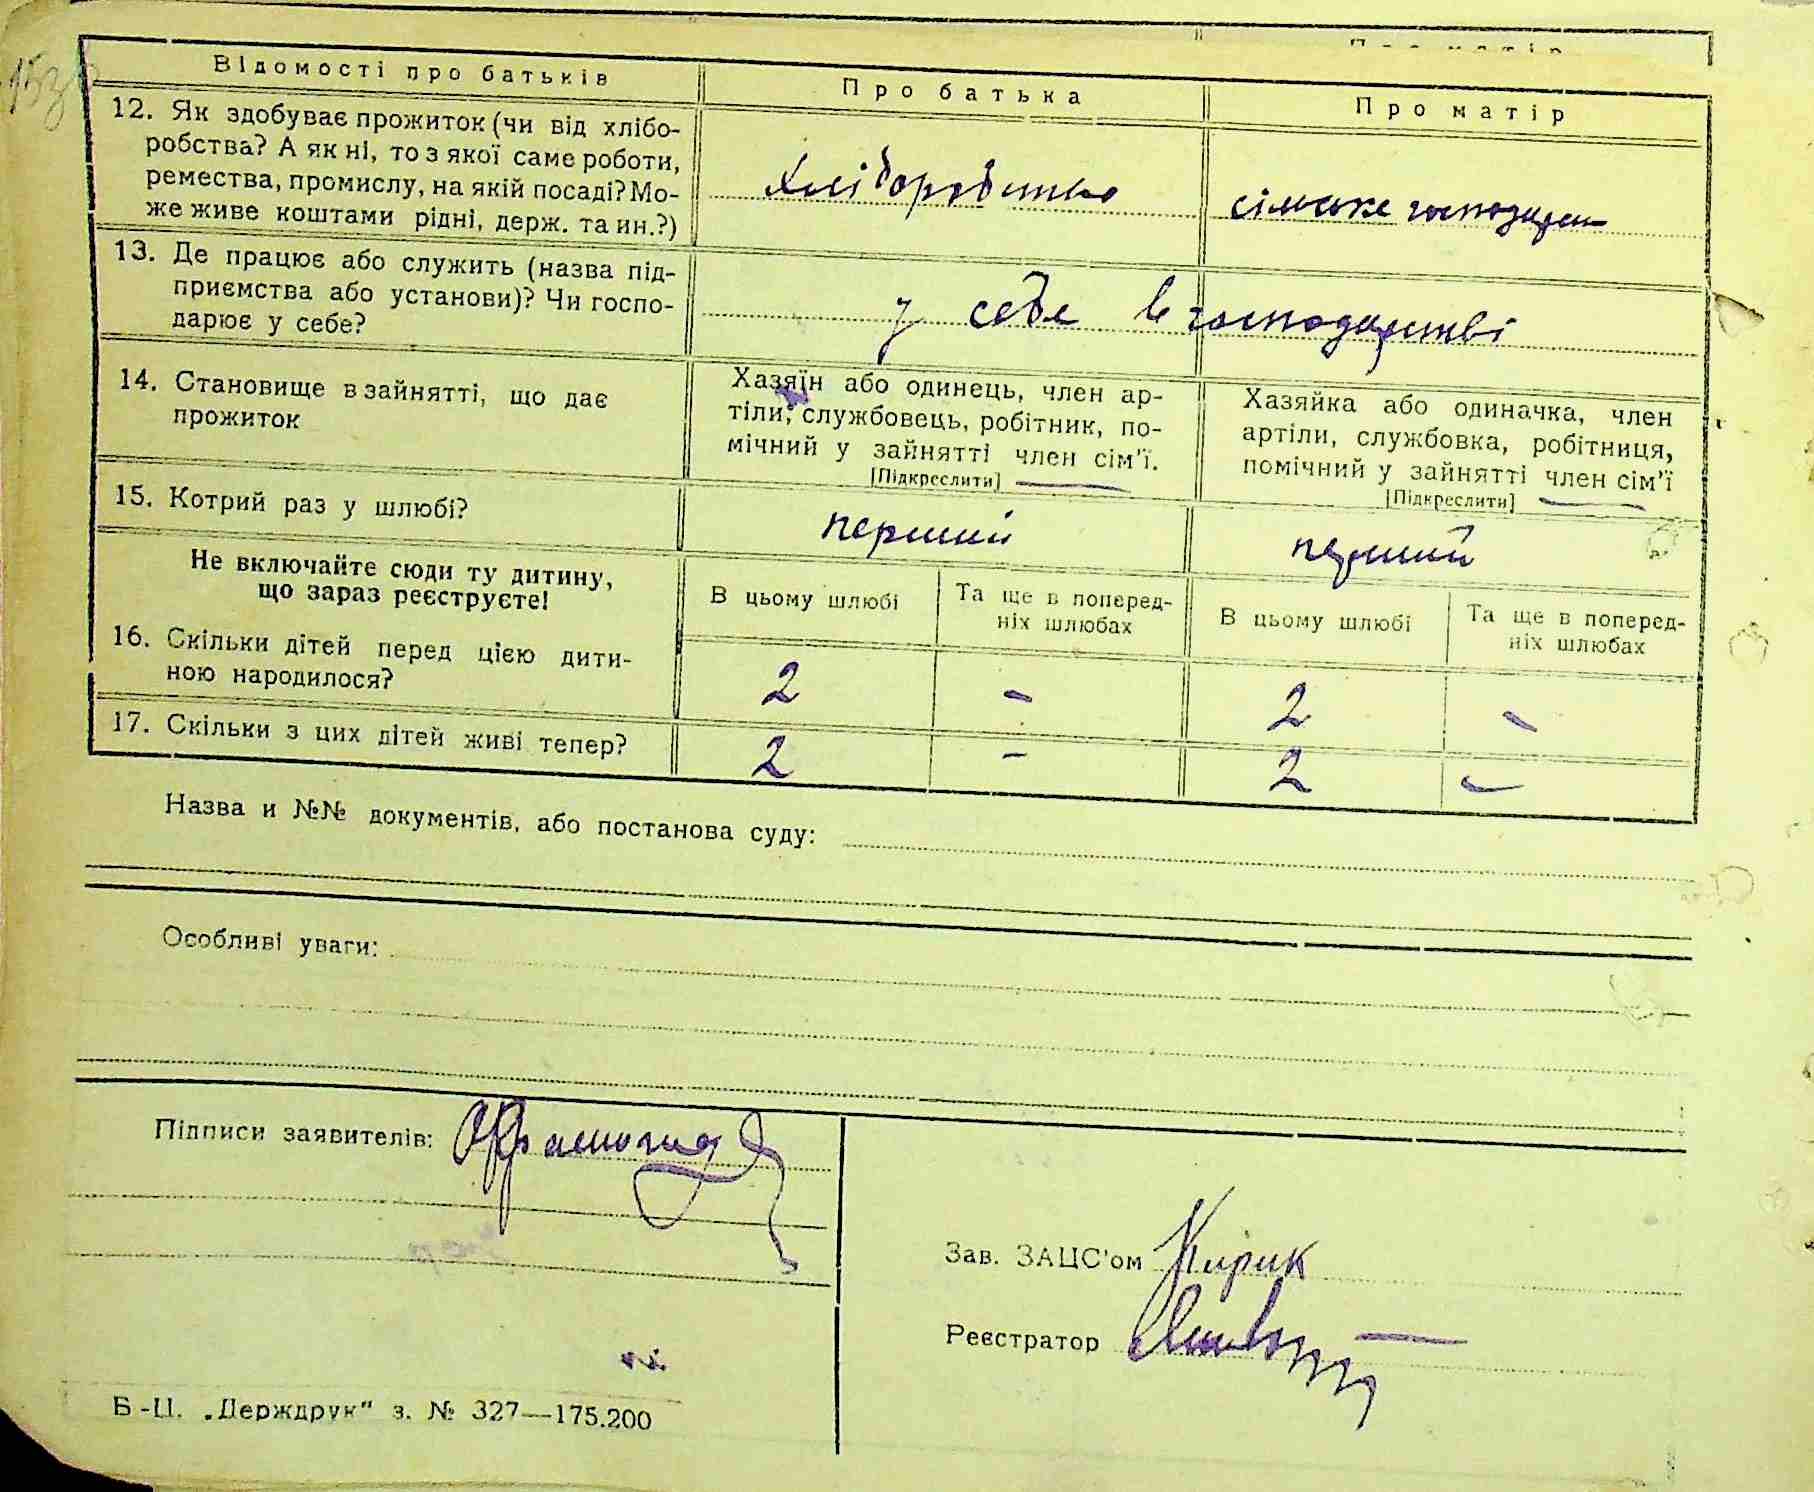 153
Відомості про батьків
Про батька
Про матір
12. Як здобуває прожиток (чи від хлібо-
робства? А як ні, то з якої саме роботи,
ремества, промислу, на якій посаді? Мо-
же живе коштами рідні, держ. та ин.?)
хліборобство
сільське господарст
13. Де працює або служить (назва під-
приємства або установи)? Чи госпо-
дарює у себе?
у себе в господарстві
14. Становище в зайнятті, що дає
прожиток
Хазяїн або одинець, член ар-
тіли, службовець, робітник, по-
мічний у зайнятті член сім'ї.
[Підкреслити]
Хазяйка або одиначка, член
артіли, службовка, робітниця,
помічний у зайнятті член сім'ї
[Підкреслити]
15. Котрий раз у шлюбі?
перший
перший
Не включайте сюди ту дитину,
що зараз реєструєте!
В цьому шлюбі
Та ще в поперед-
ніх шлюбах
В цьому шлюбі
Та ще в поперед-
ніх шлюбах
16. Скільки дітей перед цією дити-
ною народилося?
2 - 2 -
17. Скільки з цих дітей живі тепер?
2 - 2 -
Назва и №№ документів, або постанова суду:
Особливі уваги:
Підписи заявителів:
Зав. ЗАЦС'ом Кирик
Реєстратор
Б-Ц. „Держдрук" з. № 327—175.200